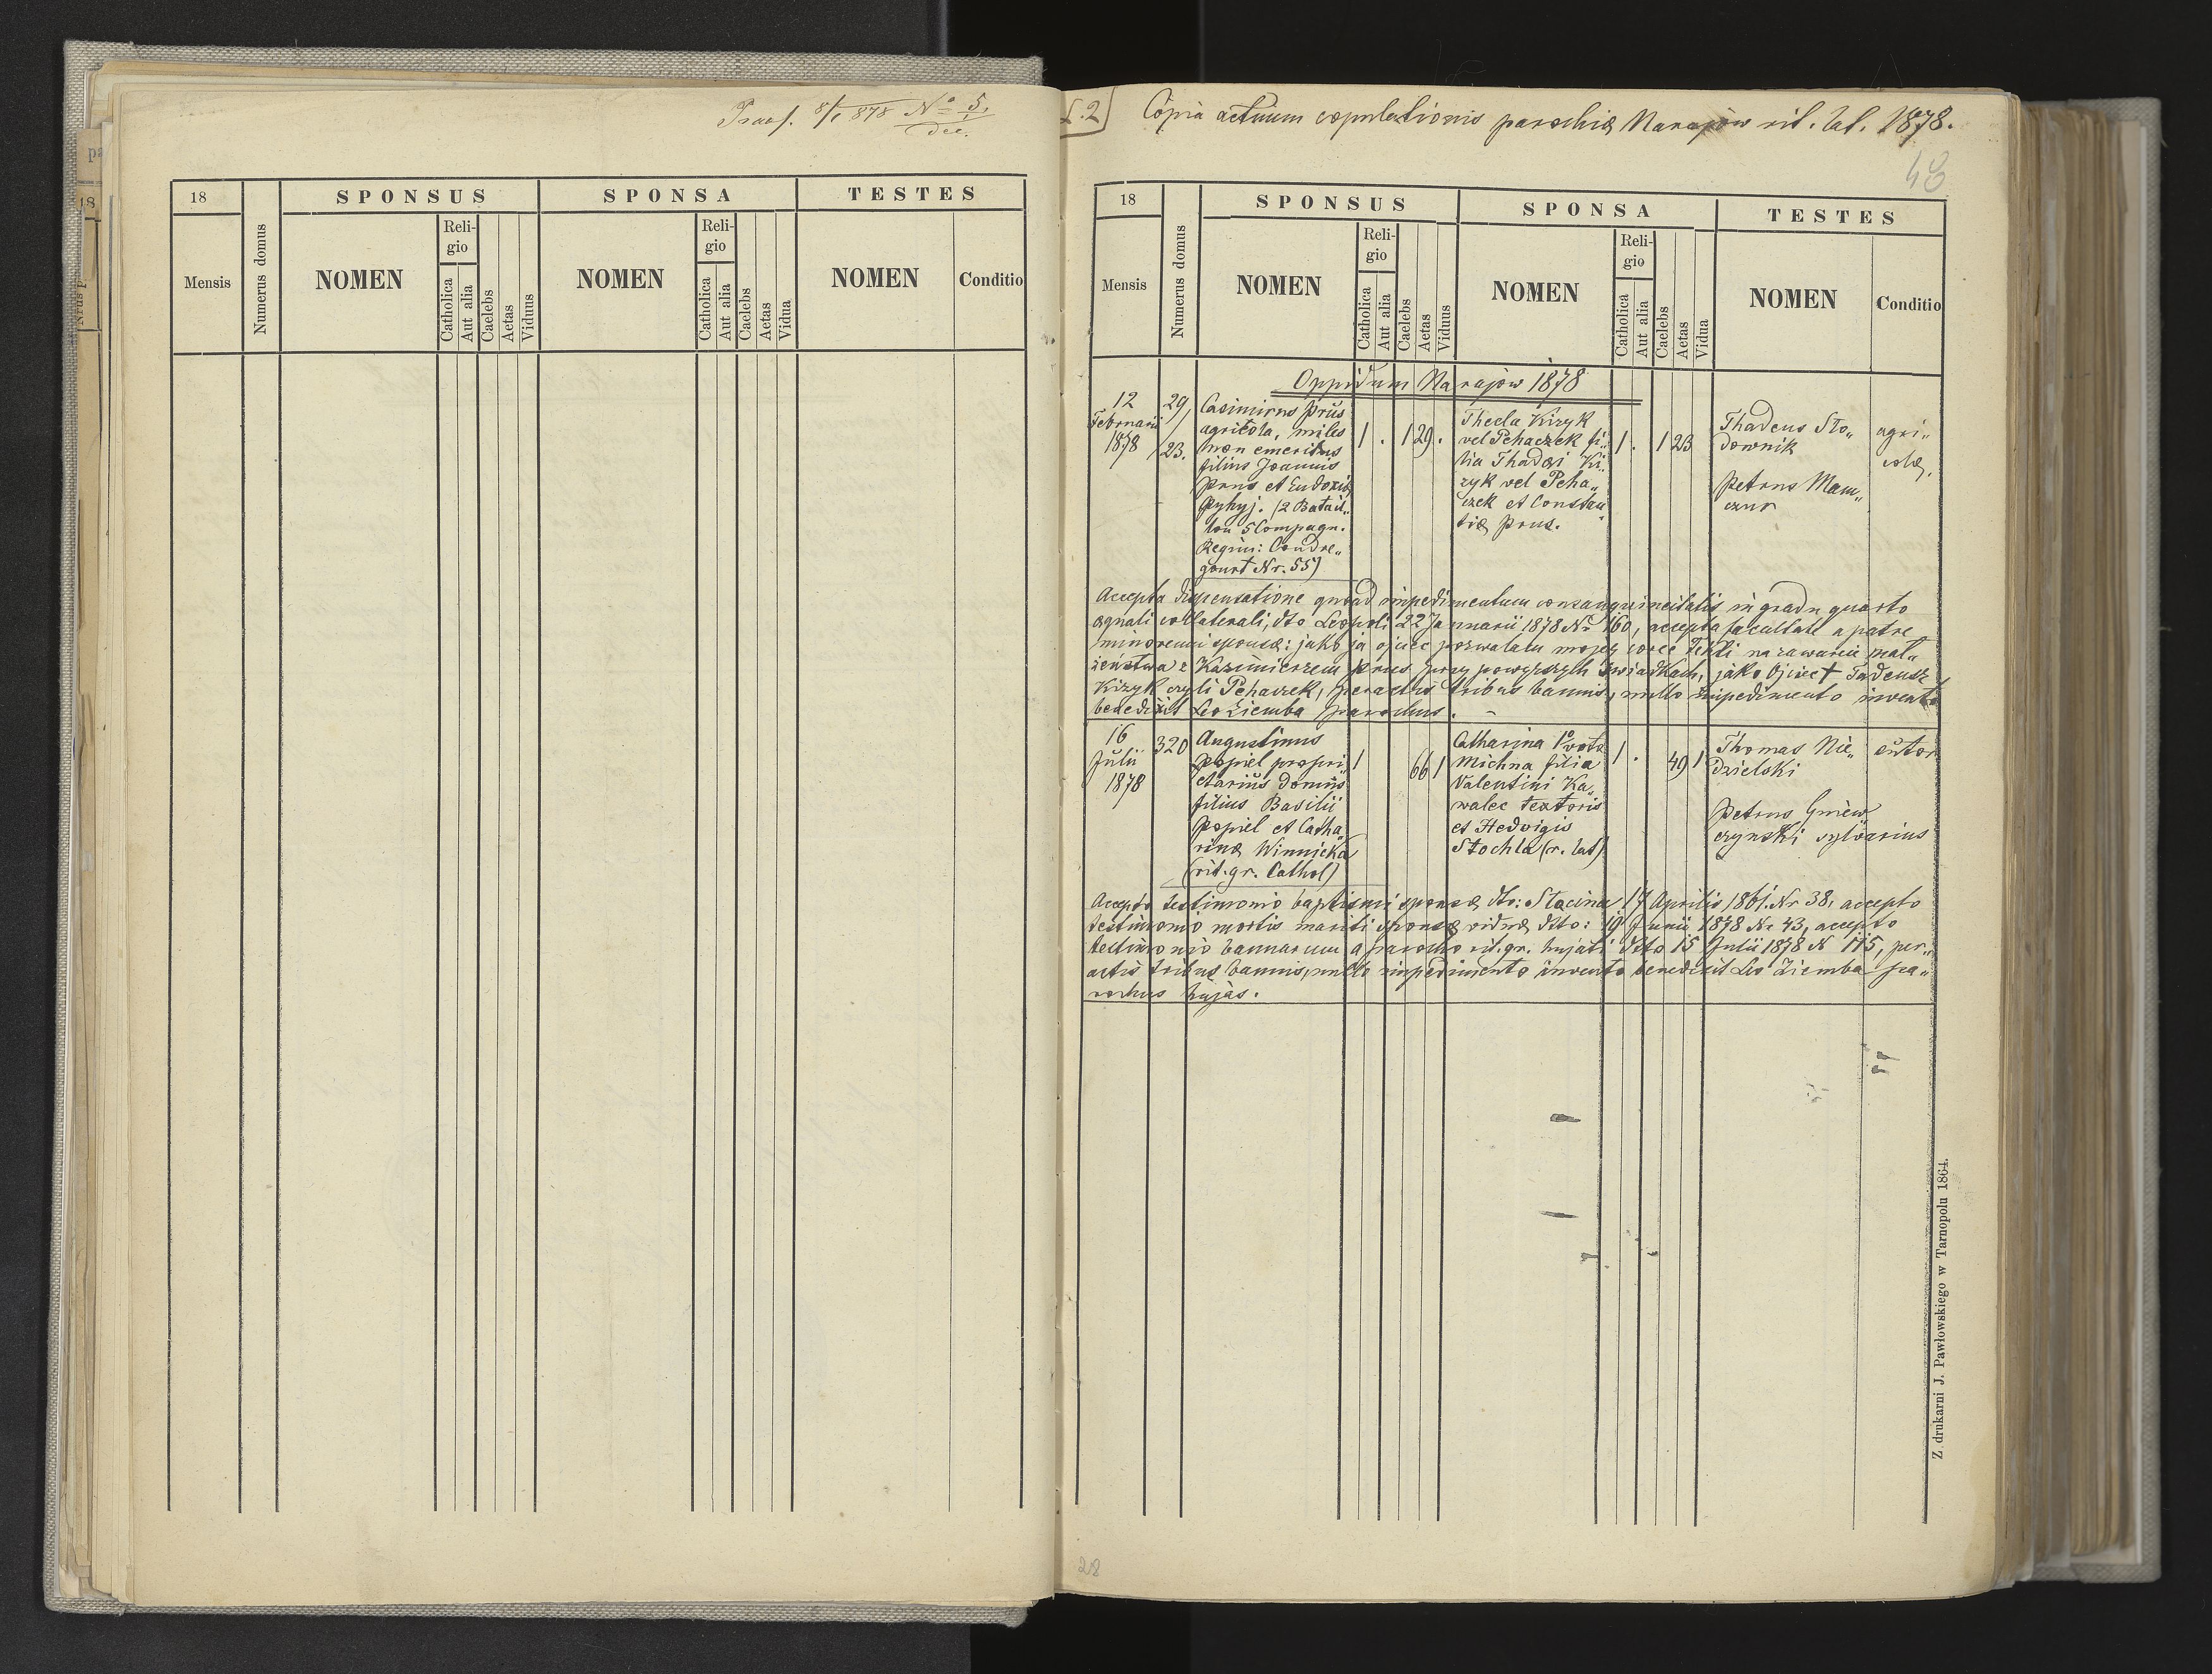 Praes. 8/1 878 No 5.
Dec.
18
Mensis
Numerus domus
SPONSUS
NOMEN
Reli-
gio
Catholica
Aut alia
Caelebs
Aetas
Viduus
SPONSA
NOMEN
Reli-
gio
Catholica
Aut alia
Caelebs
Aetas
Vidua
TESTES
NOMEN
Conditio
L.2
Copia actuum copulationis parochiæ Narajów rit. lat. 1878.
48
18
Mensis
Numerus domus
SPONSUS
NOMEN
Reli-
gio
Catholica
Aut alia
Caelebs
Aetas
Viduus
SPONSA
NOMEN
Reli-
gio
Catholica
Aut alia
Caelebs
Aetas
Vidua
TESTES
NOMEN
Conditio
Oppidum Narajów 1878
12
Februarii
1878
29/
/23.
Casimirus Prus
agricola, miles
non emeritus
filius Joannis
Prus et Eudoxiæ
Pyhyj. (2 Batail„
lon 5 Compagn.
Regim: Condre„
gourt Nr. 55)
1 . 1 29 .
Thecla Kizyk
vel Pehaczek fi„
lia Thadæi Ki„
zyk vel Peha„
czek et Constan„
tiæ Prus.
1 . 1 23
Thadeus Sto„
downik
Petrus Mam„
czur
agri„
colæ.
Accepta dispensatione quoad impedimentum consanguineitatis in gradu quarto
agnati collaterali, dto Leopoli 22 Januarii 1878 Nr 160, accepta facultate a patre
minorenni sponsæ: jako ja ojciec pozwalałem mojej córce Tekli na zawarcie mał„
żeństwa z Kazimierzem Prus przy powyższych świadkach, jako Ojciec + Tadeusz
Kizyk czyli Pehaczek, peractis tribus bannis, nullo impedimento invento
benedixit Leo Ziemba parochus. –
16
Julii
1878
320
Augustinus
Popiel propri„
etarius domus
filius Basilii
Popiel et Catha„
rinæ Winnicka
(rit. gr. Cathol)
1 66 1
Catharina 1o voto
Michna filia
Valentini Ka„
walec textoris
et Hedvigis
Stochla (r. lat)
1 . 49 1
Thomas Nie„
dzielski
Petrus Gniew„
czynski
sutor
sylvarius
Accepto testimonio baptismi sponsæ dto: Stacina 17 Aprilis 1861. Nr 38, accepto
testimonio mortis mariti sponsæ viduæ dto: 19 Junii 1878 Nr 43, accepto
testimonio bannarum a parocho rit. gr. hujati dto 15 Julii 1878 N 115, per„
actis tribus bannis, nullo impedimento invento benedixit Leo Ziemba pa„
rochus hujas.
Z drukarni J. Pawłowskiego w Tarnopolu 1864.
28